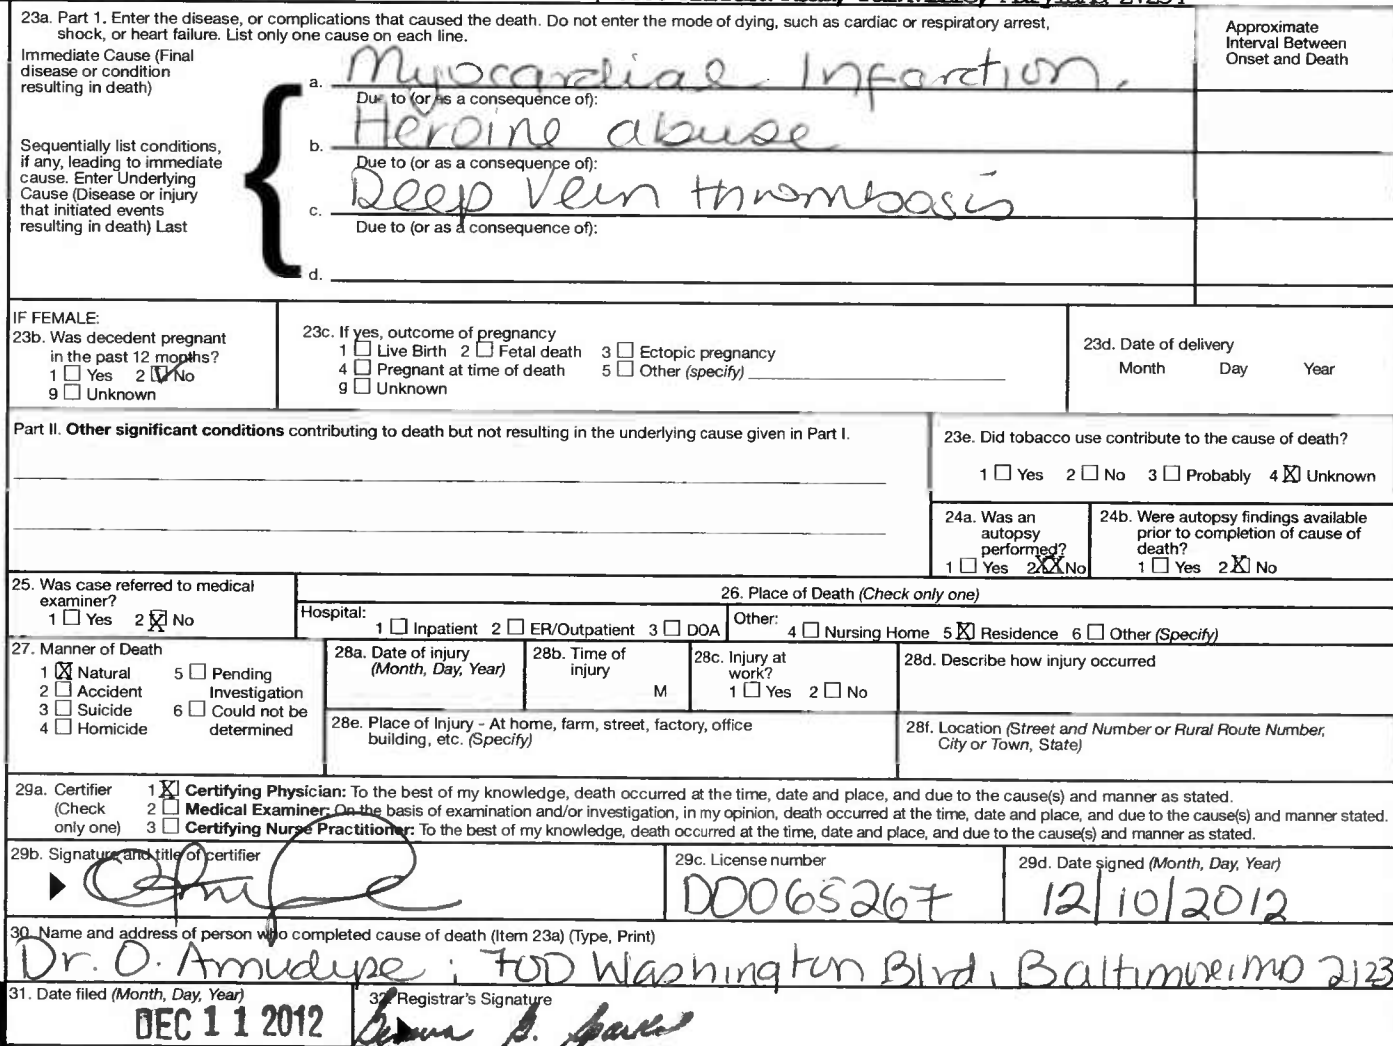 23a. Part 1. Enter the disease, or complications that caused the death. Do not enter the mode of dying, such as cardiac or respiratory arrest,
shock, or heart failure. List only one cause on each line.
Approximate
Interval Between
Onset and Death
Immediate Cause (Final
disease or condition
resulting in death)
a. Myocardial Infarction.
Due to (or as a consequence of):
Sequentially list conditions,
if any, leading to immediate
cause. Enter Underlying
Cause (Disease or injury
that initiated events
resulting in death) Last
b. Heroine abuse
Due to (or as a consequence of):
c. Deep Vein thrombosis
Due to (or as a consequence of):
d.
IF FEMALE:
23b. Was decedent pregnant
in the past 12 months?
1 ☐ Yes 2 ☑ No
9 ☐ Unknown
23c. If yes, outcome of pregnancy
1 ☐ Live Birth 2 ☐ Fetal death 3 ☐ Ectopic pregnancy
4 ☐ Pregnant at time of death 5 ☐ Other (specify)
9 ☐ Unknown
23d. Date of delivery
Month Day Year
Part II. Other significant conditions contributing to death but not resulting in the underlying cause given in Part I.
23e. Did tobacco use contribute to the cause of death?
1 ☐ Yes 2 ☐ No 3 ☐ Probably 4 ☒ Unknown
24a. Was an
autopsy
performed?
1 ☐ Yes 2 ☒ No
24b. Were autopsy findings available
prior to completion of cause of
death?
1 ☐ Yes 2 ☒ No
25. Was case referred to medical
examiner?
1 ☐ Yes 2 ☒ No
26. Place of Death (Check only one)
Hospital: 1 ☐ Inpatient 2 ☐ ER/Outpatient 3 ☐ DOA
Other: 4 ☐ Nursing Home 5 ☒ Residence 6 ☐ Other (Specify)
27. Manner of Death
1 ☒ Natural
2 ☐ Accident
3 ☐ Suicide
4 ☐ Homicide
5 ☐ Pending
Investigation
6 ☐ Could not be
determined
28a. Date of injury
(Month, Day, Year)
28b. Time of
injury
M
28c. Injury at
work?
1 ☐ Yes 2 ☐ No
28d. Describe how injury occurred
28e. Place of Injury - At home, farm, street, factory, office
building, etc. (Specify)
28f. Location (Street and Number or Rural Route Number,
City or Town, State)
29a. Certifier
(Check
only one)
1 ☒ Certifying Physician: To the best of my knowledge, death occurred at the time, date and place, and due to the cause(s) and manner as stated.
2 ☐ Medical Examiner: On the basis of examination and/or investigation, in my opinion, death occurred at the time, date and place, and due to the cause(s) and manner stated.
3 ☐ Certifying Nurse Practitioner: To the best of my knowledge, death occurred at the time, date and place, and due to the cause(s) and manner as stated.
29b. Signature and title of certifier
29c. License number
D0065267
29d. Date signed (Month, Day, Year)
12/10/2012
30. Name and address of person who completed cause of death (Item 23a) (Type, Print)
Dr. O. Amudipe ; 700 Washington Blvd, Baltimore, MD 2123
31. Date filed (Month, Day, Year)
DEC 11 2012
32. Registrar's Signature